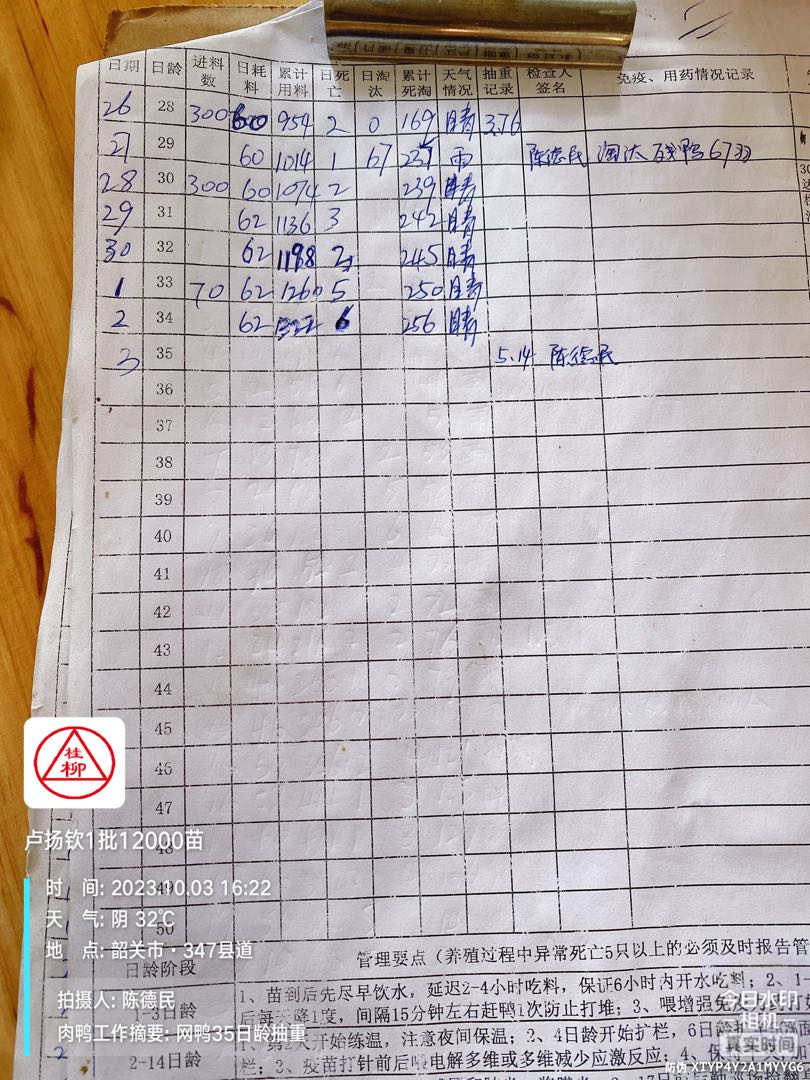 日期 日龄 进料数 日耗料 累计用料 日死亡 日淘汰 累计死淘 天气情况 抽重记录 检查人签名 免疫、用药情况记录
26 28 300 60 954 2 0 169 晴 3.76
27 29 60 1014 1 67 237 雨 陈德民 淘汰残鸭67羽
28 30 300 60 1074 2 239 晴
29 31 62 1136 3 242 晴
30 32 62 1198 245 晴
1 33 70 62 1260 5 250 晴
2 34 62 1322 6 256 晴
3 35 5.14 陈德民
36
37
38
39
40
41
42
43
44
45
46
47
48
49
50
桂柳
卢扬钦1批12000苗
时 间: 2023.10.03 16:22
天 气: 阴 32℃
地 点: 韶关市·347县道
拍摄人: 陈德民
肉鸭工作摘要: 网鸭35日龄抽重
日龄阶段 管理要点（养殖过程中异常死亡5只以上的必须及时报告管
1-3日龄 1、苗到后先尽早饮水，延迟2-4小时吃料，保证6小时内开水吃料；2、1-
后每天降1度，间隔15分钟左右赶鸭1次防止打堆；3、喂增强免疫
2-14日龄 天开始练温，注意夜间保温；2、4日龄开始扩栏，6日龄
栏；3、疫苗打针前后喂电解多维或多维减少应激反应；4、保持
今日水印
相机
真实时间
防伪 XTYP4Y2A1MYYGG